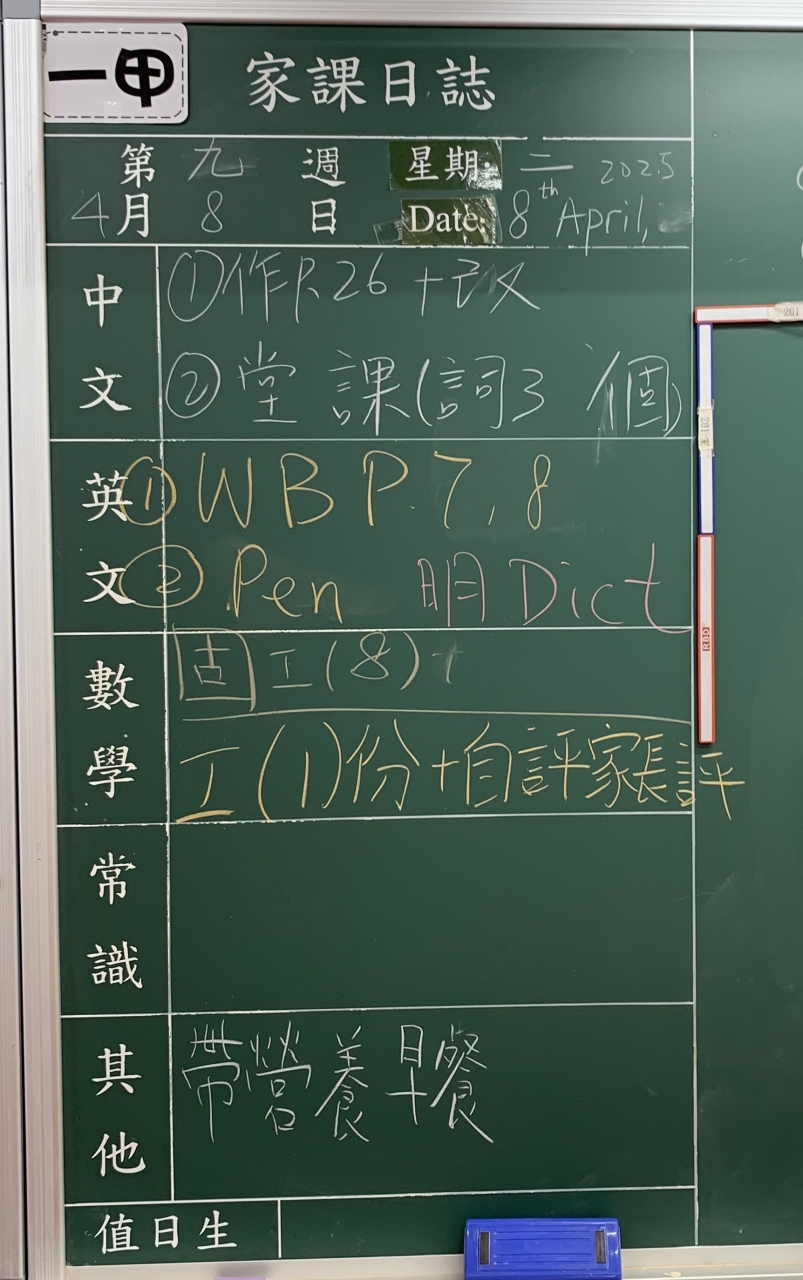 一甲
家課日誌
第 九 週 星期: 二 2025
4月 8 日 Date: 8th April,
中文
①作P.26 +改
②堂課(詞3個)
英文
①WB P.7,8
②Pen 明Dict
數學
固工(8)+
工(1)份+自評家長評
常識
其他
帶營養早餐
值日生